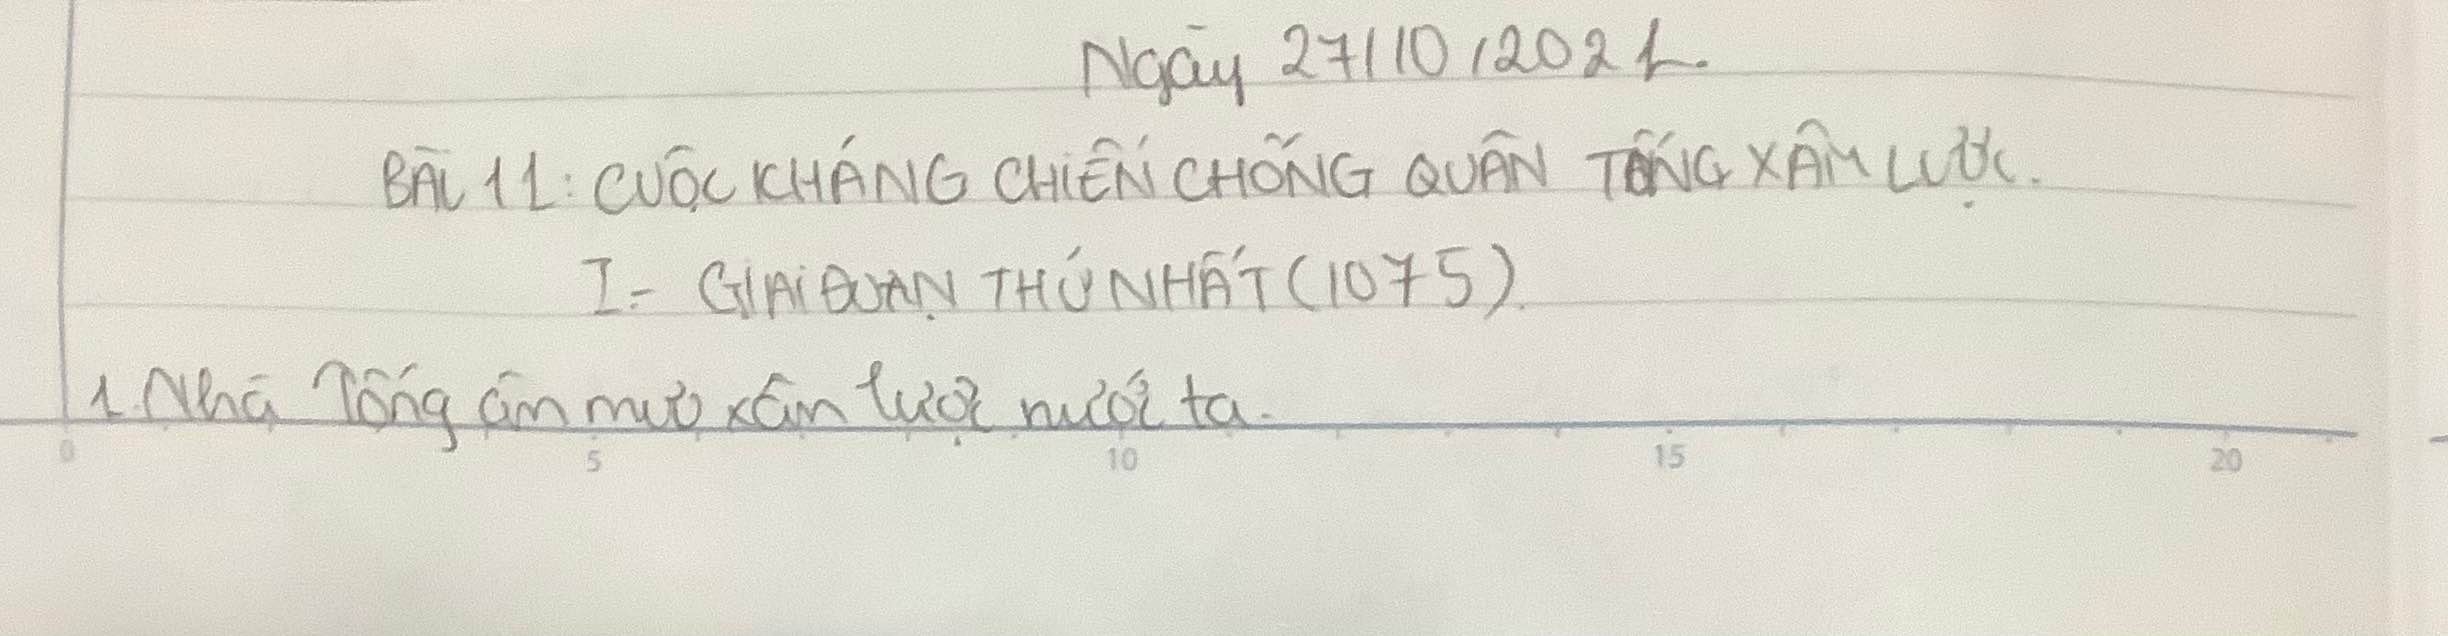 Ngày 27/10/2021.
BÀI 11: CUỘC KHÁNG CHIẾN CHỐNG QUÂN TỐNG XÂM LƯỢC.
I- GIAI ĐOẠN THỨ NHẤT (1075).
1. Nhà Tống âm mưu xâm lược nước ta.
0 5 10 15 20